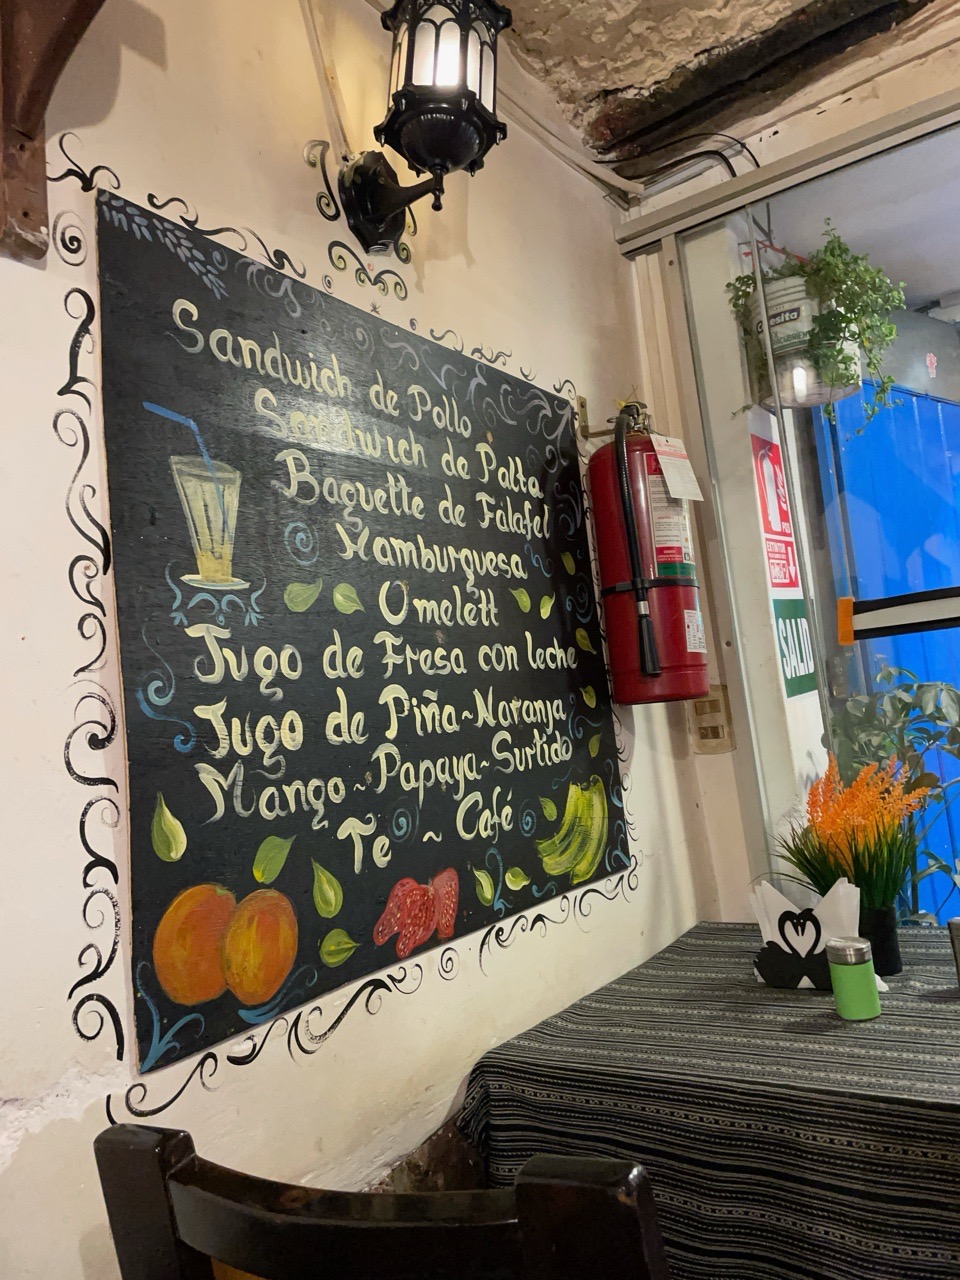 Sandwich de Pollo
Sandwich de Palta
Baguette de Falafel
Hamburguesa
Omelett
Jugo de Fresa con leche
Jugo de Piña~Naranja
Mango~Papaya~Surtido
Te ~ Café
EXTINTOR
SALID